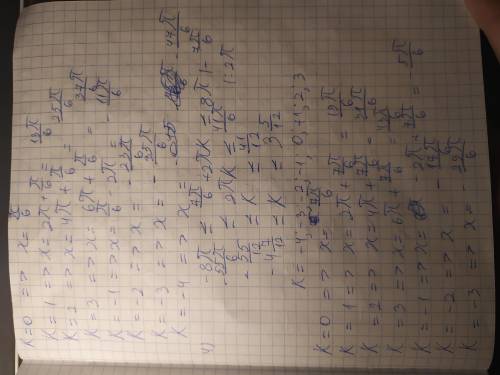 K=0 => x= π/6
K=1 => x= 2π+ π/6 = 13π/6
K=2 => x= 4π+ π/6 = 25π/6
K=3 => x= 6π+ π/6 = 37π/6
K=-1 => x= π/6 - 2π = - 11π/6
K=-2 => x= - 23π/6
K=-3 => x= - 35π/6
K=-4 => x= - 47π/6
-8π ≤ 7π/6 +2πK ≤ 8π |- 7π/6
- 55π/6 ≤ 2πK ≤ 41π/6 |:2π
- 55/12 ≤ K ≤ 41/12
-4 7/12 ≤ K ≤ 3 5/12
K= -4,-3,-2,-1,0,+1;2;3
K=0 => x= 7π/6
K=1 => x= 2π+ 7π/6 = 19π/6
K=2 => x= 4π+ 7π/6 = 31π/6
K=3 => x= 6π+ 7π/6 = 43π/6
K=-1 => x= - 5π/6
K=-2 => x= - 17π/6
K=-3 => x= - 29π/6